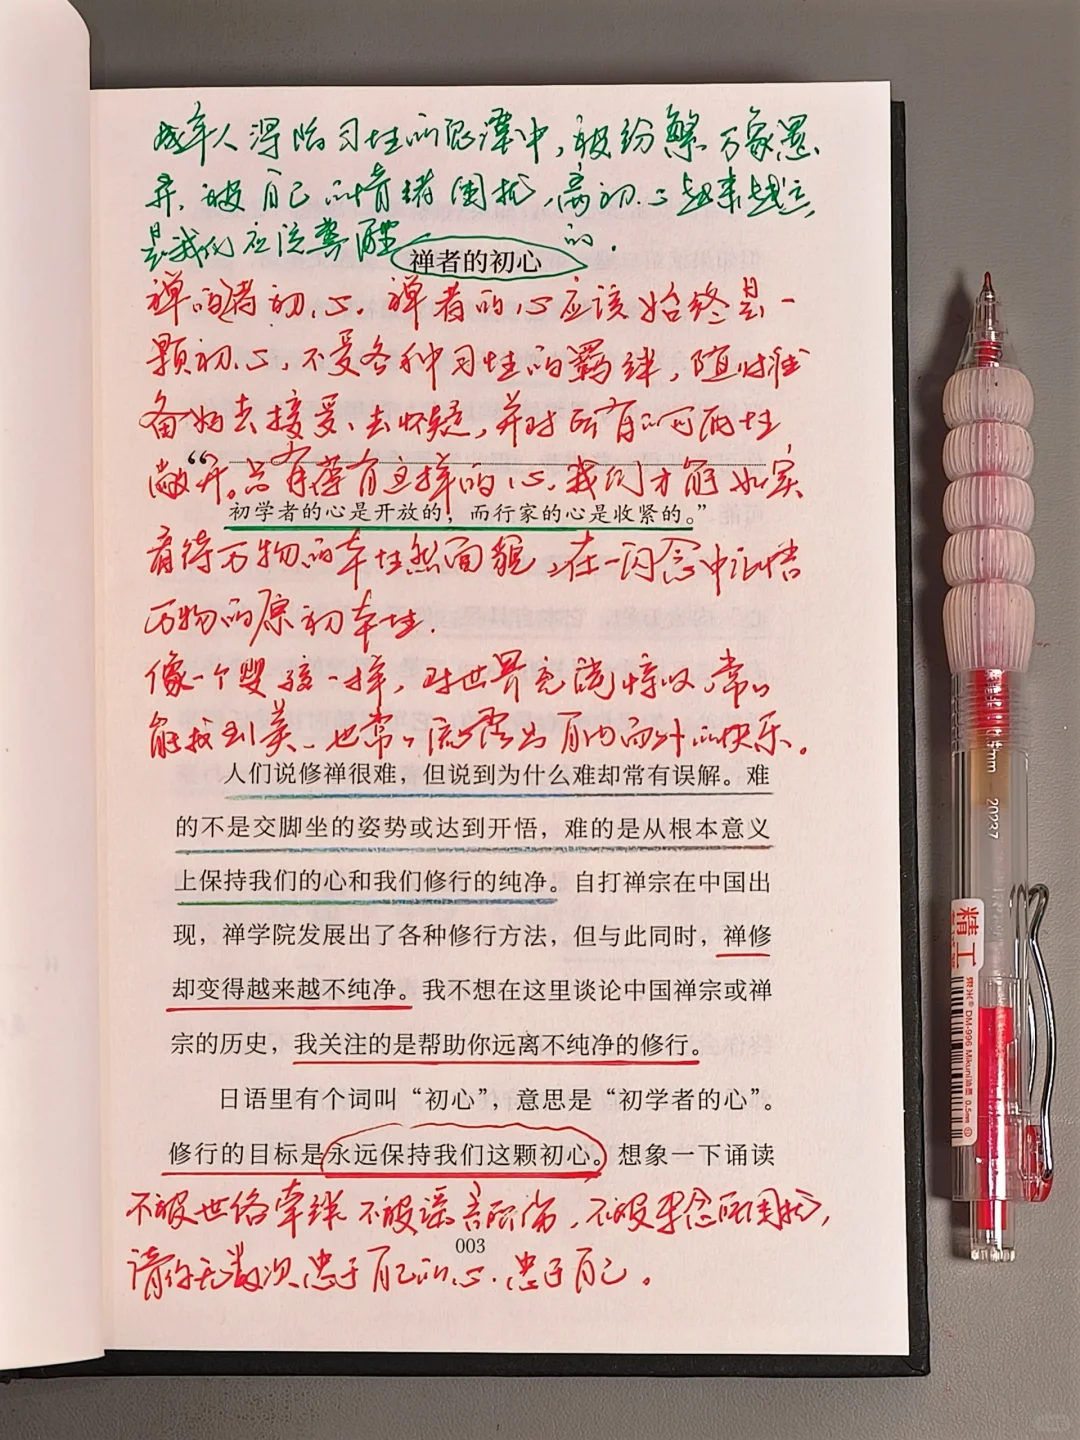 成年人深陷习性的泥潭中，被纷繁万象愚
弄，被自己的情绪困扰，离初心越来越远，
是我们应该警醒的．
禅者的初心
禅者初心．禅者的心应该始终是一
颗初心，不受各种习性的羁绊，随时准
备好去接受、去怀疑，并对所有的可能性
敞开。只有葆有这样的心，我们才能如实
“
初学者的心是开放的，而行家的心是收紧的。”
看待万物的本性然面貌，在一闪念中证悟
万物的原初本性．
像一个婴孩一样，对世界充满惊叹，常常
能找到美、也常常流露出自内而外的快乐。
人们说修禅很难，但说到为什么难却常有误解。难
的不是交脚坐的姿势或达到开悟，难的是从根本意义
上保持我们的心和我们修行的纯净。自打禅宗在中国出
现，禅学院发展出了各种修行方法，但与此同时，禅修
却变得越来越不纯净。我不想在这里谈论中国禅宗或禅
宗的历史，我关注的是帮助你远离不纯净的修行。
日语里有个词叫“初心”，意思是“初学者的心”。
修行的目标是永远保持我们这颗初心。想象一下诵读
不被世俗牵绊 不被谣言所伤，不被杂念所困扰，
003
请你无数次忠于自己的心．忠于自己。
5mm
20237
精工
DM-996 Mikuni油墨 0.5mm